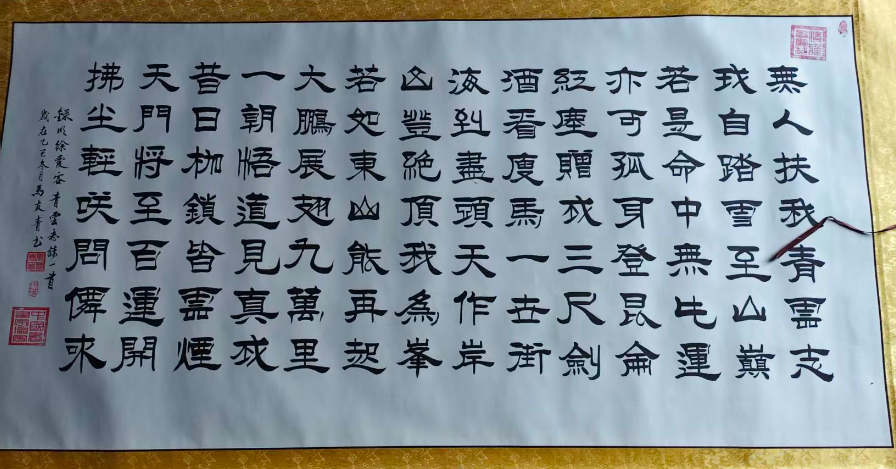 無人扶我青雲志
我自踏雪至山巔
若是命中無此運
亦可孤身登昆侖
紅塵贈我三尺劍
酒看廋馬一世街
海到盡頭天作岸
山登絕頂我為峯
若如東山能再起
大鵬展翅九萬里
一朝悟道見真我
昔日枷鎖皆雲煙
天門將至百運開
拂尘輕咲問僊來
錄明徐霞客青雲志詩一首
歲在乙巳冬月馬友青书